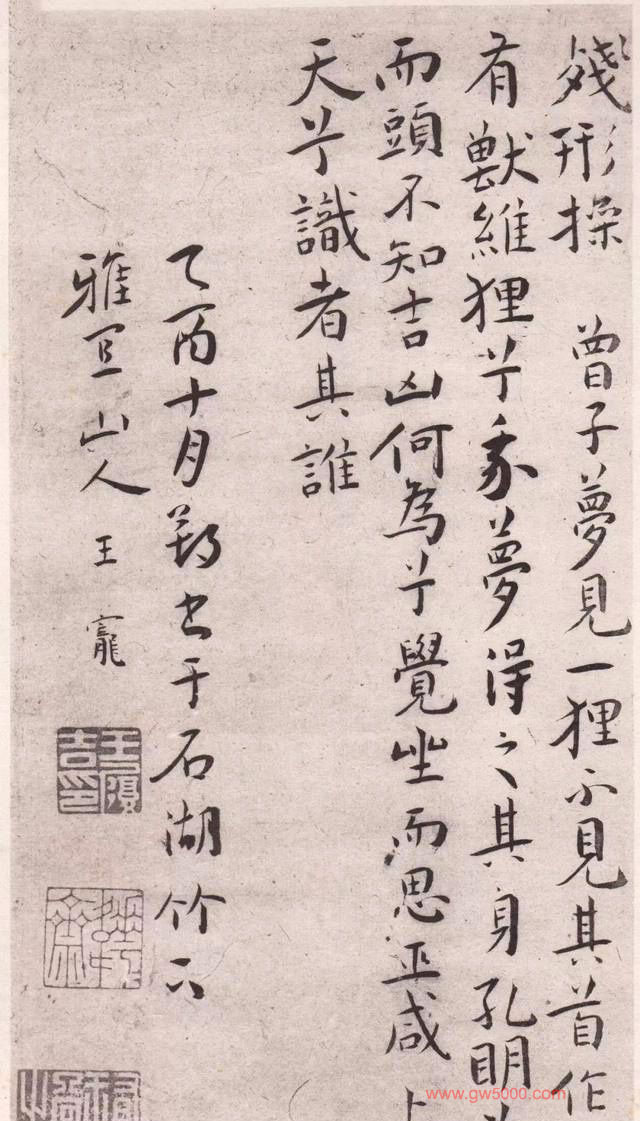 殘形操 曾子夢見一狸不見其首作
有獸維狸兮我夢得之其身孔明兮
而頭不知吉凶何為兮覺坐而思巫咸上
天兮識者其誰
乙酉十月朔書于石湖竹下
雅宜山人 王寵
王履吉印
www.gw5000.com